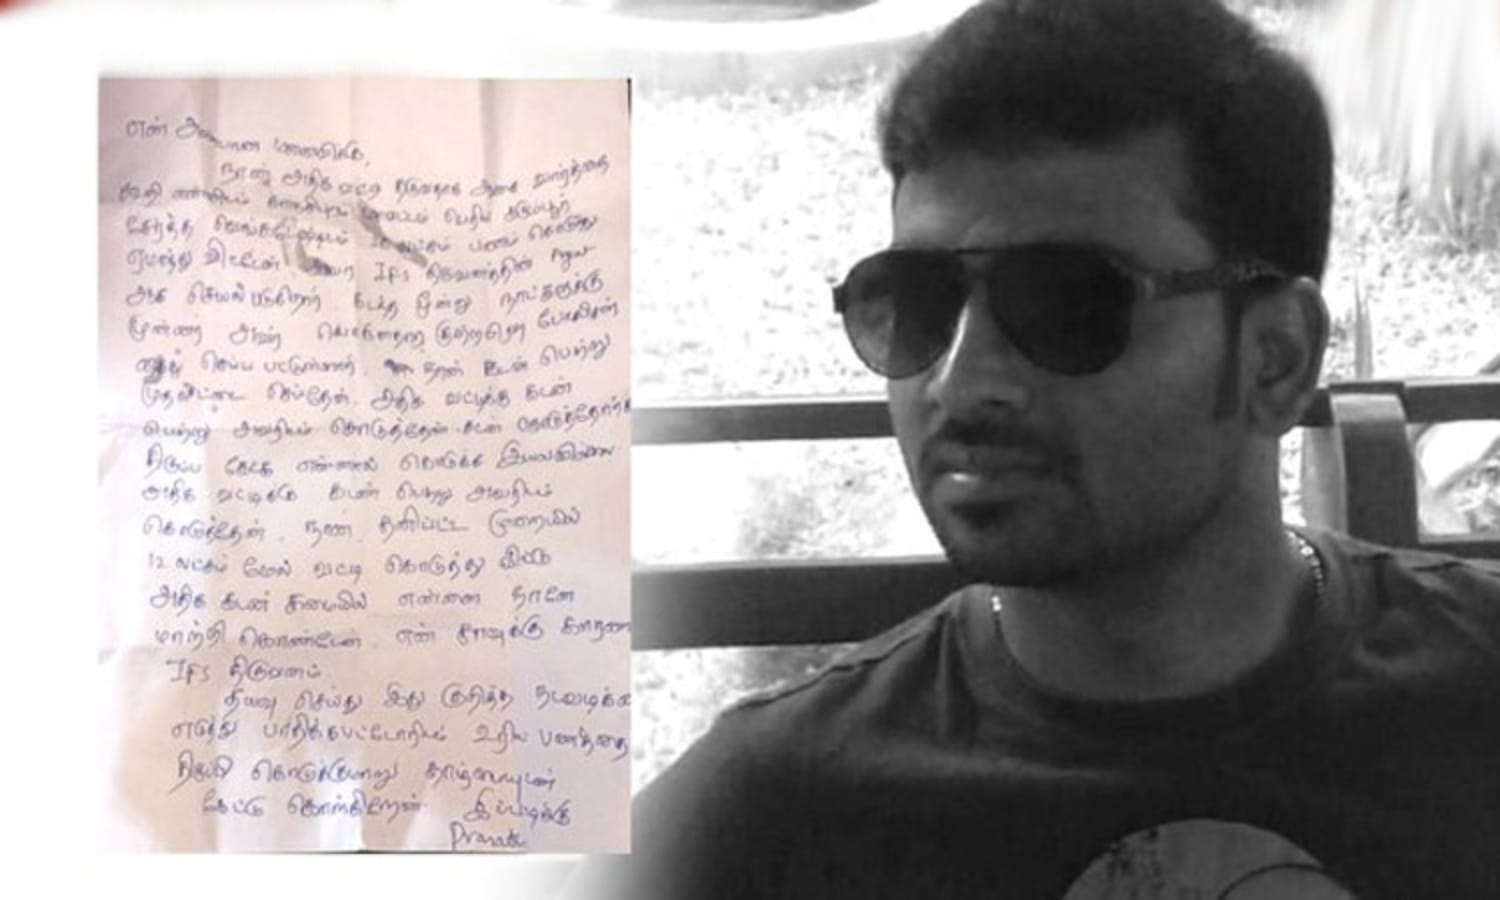 என் அன்பான மனைவிக்கு,
நான் அதிக வட்டி தருவதாக ஆசை வார்த்தை
கூறி என்னிடம் பெரிய
சேர்த்த வெங்கடேசனிடம் லட்சம் பணம் கொடுத்து
ஏமாந்து விட்டேன் அவர் IFS நிறுவனத்தின்
ஆக செயல்படுகிறார். கடந்த மூன்று நாட்களுக்கு
முன்னர் அவர் போலீசார்
கைது செய்ய பட்டுள்ளார். நான் கடன் பெற்று
முதலீட்டை செய்தேன். அதிக வட்டிக்கு கடன்
பெற்று அவரிடம் கொடுத்தேன். கடன் கொடுத்தோர்கள்
திருப்ப கேட்க என்னால் கொடுக்க இயலவில்லை.
அதிக வட்டிக்கு கடன் பெற்று அவரிடம்
கொடுத்தேன். நான் தனிப்பட்ட முறையில்
12 லட்சம் மேல் வட்டி கொடுத்து விட்டு
அதிக கடன் சுமையில் என்னை நானே
மாற்றி கொண்டேன். என் சாவுக்கு காரணம்
IFS நிறுவனம்.
தயவு செய்து இது குறித்த நடவடிக்கை
எடுத்து பாதிக்கபட்டோரிடம் உரிய பணத்தை
திருப்பி கொடுக்குமாறு தாழ்மையுடன்
கேட்டு கொள்கிறேன். இப்படிக்கு